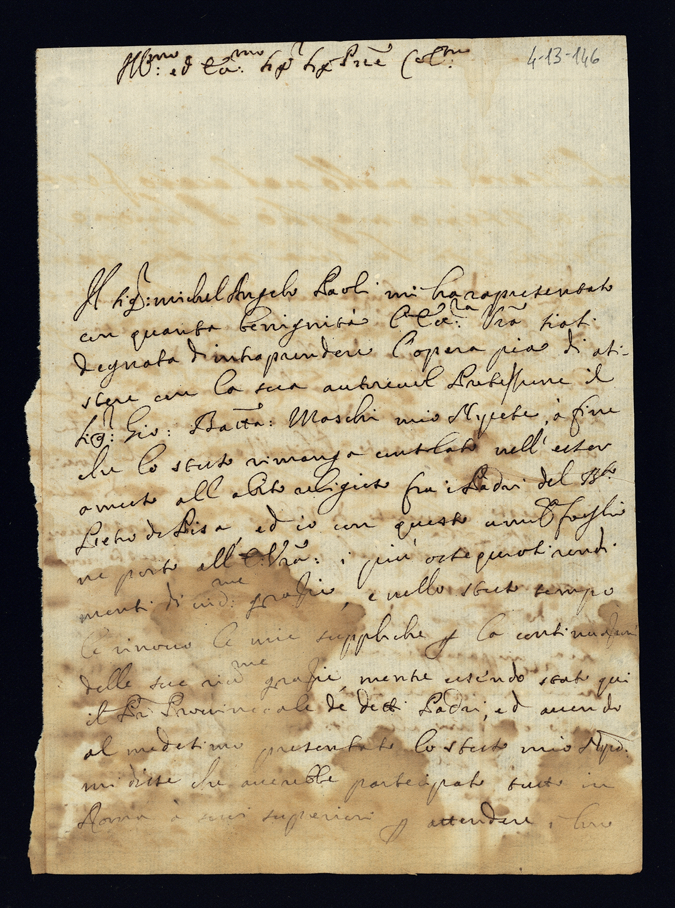 Ill:mo ed Ecc:mo Sig.r Sig.r Pr̃ne Col:mo
4-13-146
Il Sig.r: Michel Angelo Paoli mi ha rapresentato
con quanta benignità l'Ecc:za Vr̃a siasi
degnata d'intraprendere l'opera pia di assi-
stere con la sua autorevol Protessione il
Sig.r: Gio: Batta: Moschi mio Nipote, à fine
che lo stesso rimanga consolato nell'esser
amesso all'abito religioso fra i Padri del B.to
Pietro di Pisa ed io con questo umil foglio
ne porto all'E: Vr̃a: i più ossequiosi rendi
menti di grazie, e nello stesso tempo
le rinovo le mie suppliche p la continuazione
delle sue grazie, mentre essendo stato qui
il Pr̃e Provinciale de detti Padri, ed avendo
al medesimo presentato lo stesso mio Nipo:
mi disse che averebbe partecipato tutto in
Roma à suoi superiori p attendere i loro